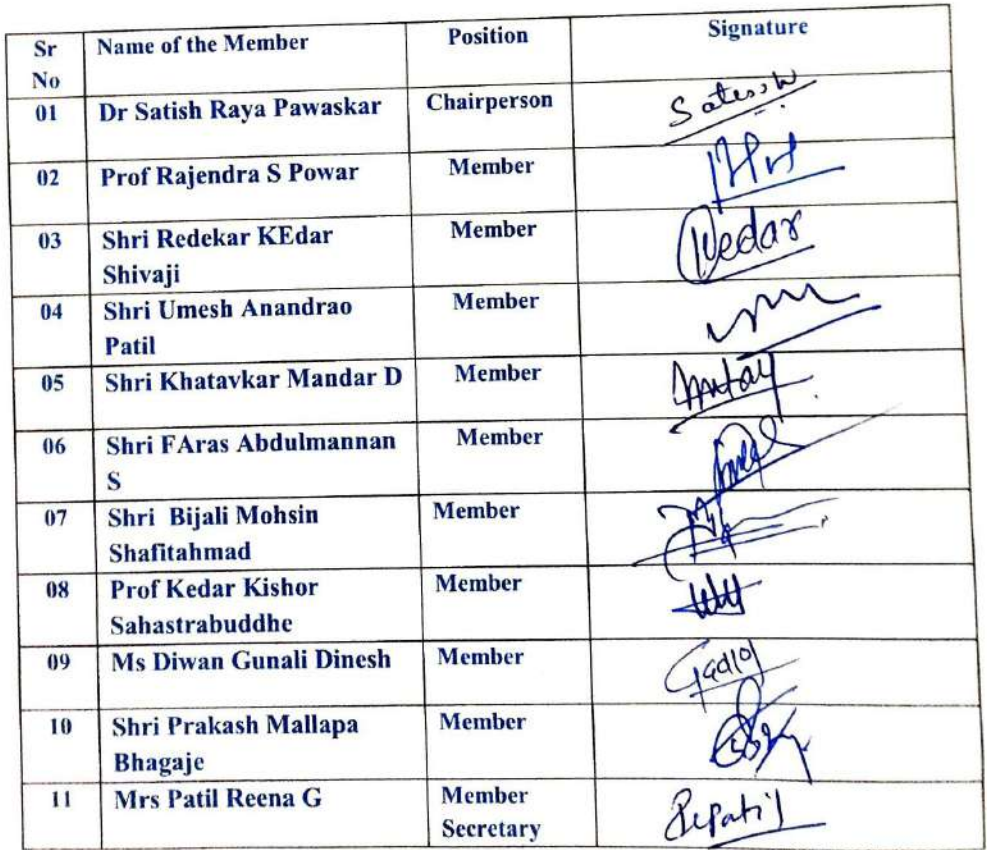 Sr No Name of the Member Position Signature
01 Dr Satish Raya Pawaskar Chairperson Satissh
02 Prof Rajendra S Powar Member
03 Shri Redekar KEdar Member Kedar
Shivaji
04 Shri Umesh Anandrao Member
Patil
05 Shri Khatavkar Mandar D Member
06 Shri FAras Abdulmannan Member
S
07 Shri Bijali Mohsin Member
Shafitahmad
08 Prof Kedar Kishor Member
Sahastrabuddhe
09 Ms Diwan Gunali Dinesh Member
10 Shri Prakash Mallapa Member
Bhagaje
11 Mrs Patil Reena G Member
Secretary